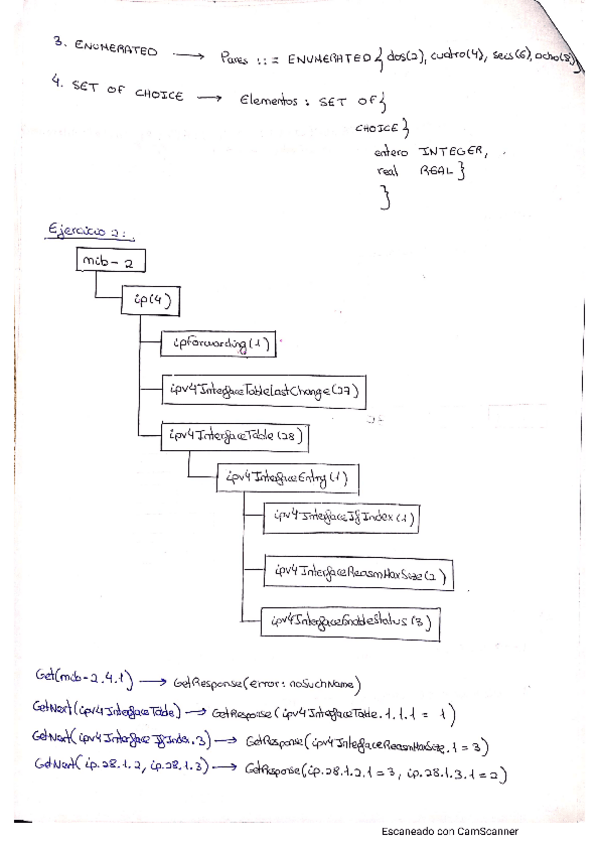 3. ENUMERATED → Pares ::= ENUMERATED { dos(2), cuatro(4), seis(6), ocho(8)}
4. SET OF CHOICE → Elementos : SET OF {
CHOICE }
entero INTEGER,
real REAL }
}
Ejercicio 2:
mib-2
ip(4)
ipForwarding(1)
ipv4InterfaceTableLastChange(27)
ipv4InterfaceTable(28)
ipv4InterfaceEntry(1)
ipv4InterfaceIfIndex(1)
ipv4InterfaceReasmMaxSize(2)
ipv4InterfaceEnableStatus(3)
Get(mib-2.4.1) → GetResponse(error: noSuchName)
GetNext(ipv4InterfaceTable) → GetResponse(ipv4InterfaceTable.1.1.1 = 1)
GetNext(ipv4InterfaceIfIndex.3) → GetResponse(ipv4InterfaceReasmMaxSize.1 = 3)
GetNext(ip.28.1.2, ip.28.1.3) → GetResponse(ip.28.1.2.1 = 3, ip.28.1.3.1 = 2)
Escaneado con CamScanner